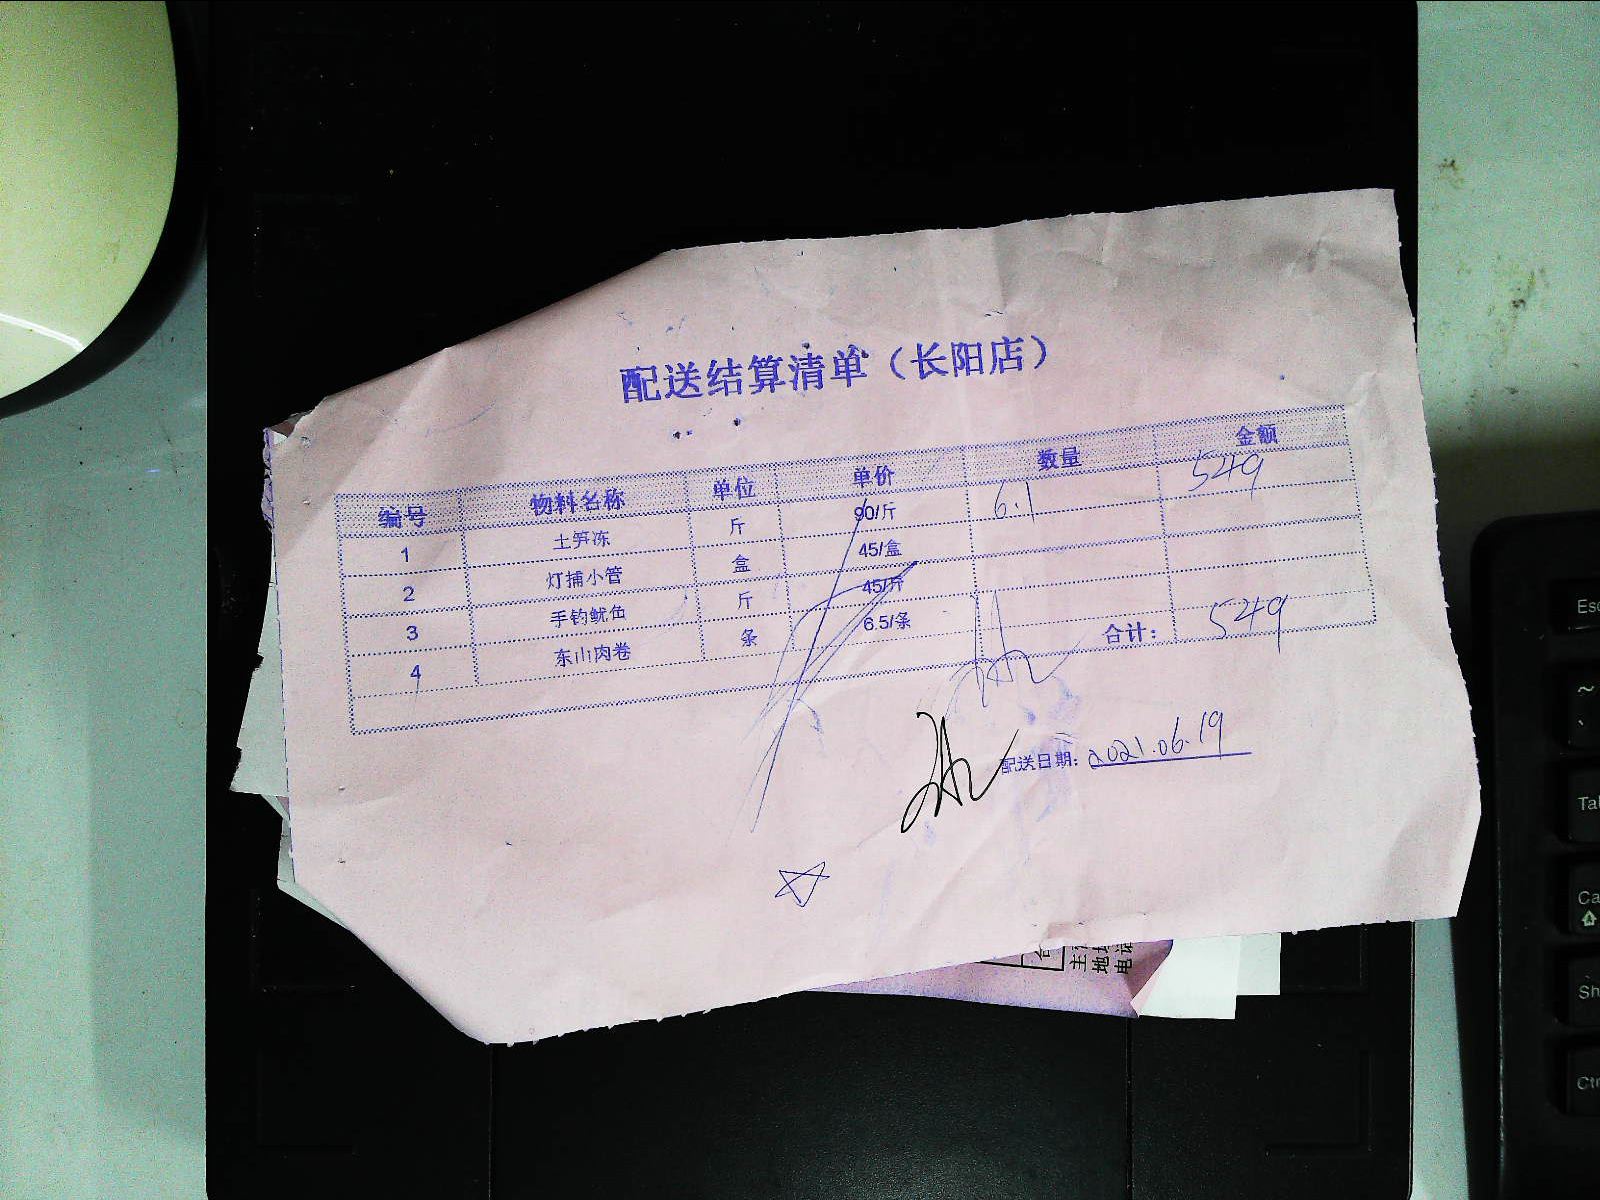 配送结算清单（长阳店）
编号 物料名称 单位 单价 数量 金额
1 土笋冻 斤 90/斤 6.1 549
2 灯捕小管 盒 45/盒
3 手钓鱿鱼 斤 45/斤
4 东山肉卷 条 6.5/条
合计： 549
配送日期：2021.06.19
主
地址
电话
Esc
~
Tab
Ca
Sh
Ctr